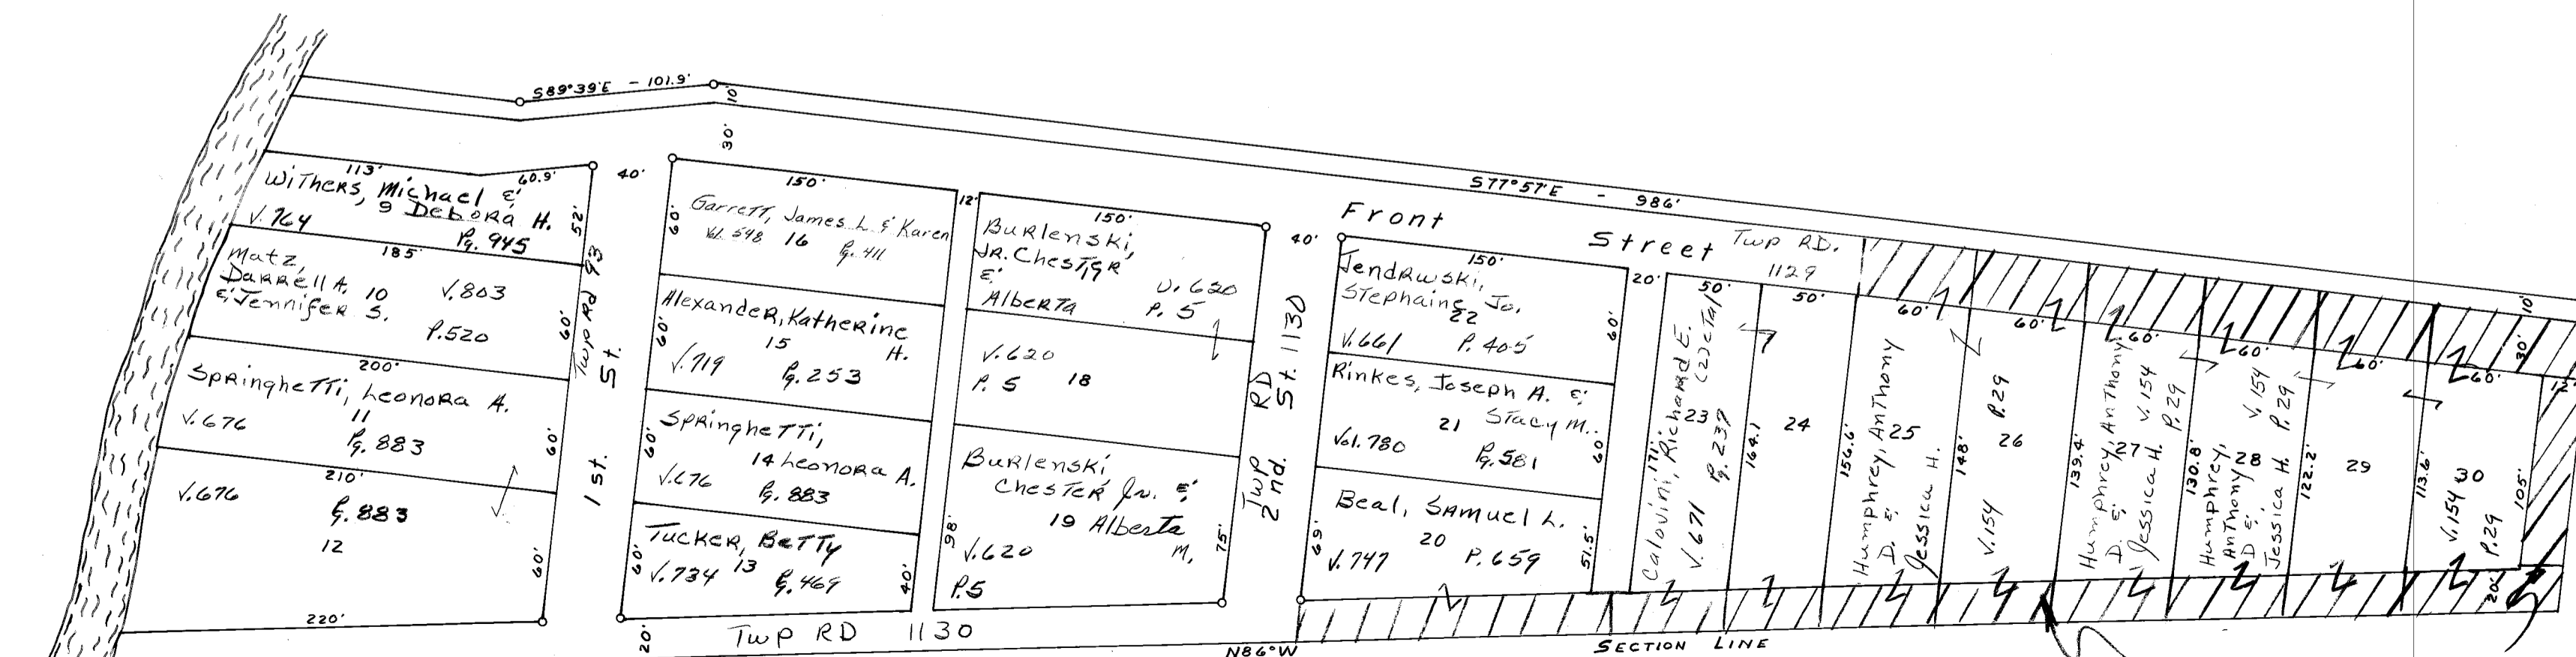 S89°39'E - 101.9'
10'
30'
S77°57'E - 986'
Front Street Twp RD. 1129
113'
60.9'
Withers, Michael &
9 Debora H.
V. 764
Pg. 945
52'
185'
Matz,
Darrell A. 10
& Jennifer S.
V.803
P.520
60'
200'
Springhetti, Leonora A.
11
V.676
Pg. 883
60'
210'
V.676
Pg. 883
12
60'
220'
40'
Twp Rd 93
1st. St.
150'
60'
Garrett, James L & Karen
Vol. 548 16 Pg. 411
Alexander, Katherine
15 H.
60'
V.719 Pg. 253
Springhetti,
14 Leonora A.
60'
V.676 Pg. 883
Tucker, Betty
13
60'
V.734 Pg. 469
40'
20'
Twp RD 1130
12'
150'
Burlenski,
Jr. Chester
&
Alberta
V. 620
P. 5
V.620
P. 5 18
Burlenski
Chester Jr. &
19 Alberta
M,
98'
V.620
P.5
75'
40'
Twp RD
2nd. St. 1130
150'
Jendrwski,
Stephaine Jo.
22
V.661 P. 405
60'
Rinkes, Joseph A. &
21 Stacy M.
Vol. 780 Pg. 581
60'
Beal, Samuel L.
20
69'
V.747 P. 659
51.5'
20'
50'
Calovini, Richard E.
(22 etal
171'
23
V.671 Pg. 237
50'
164.1
24
60'
156.6'
Humphrey, Anthony
D. &
25
Jessica H.
60'
148'
P.29
26
V.154
60'
139.4'
Humphrey, Anthony
D. &
27
Jessica H. V.154
P.29
60'
130.8'
Humphrey,
Anthony
D &
28
Jessica H.
V.154
P.29
60'
122.2'
29
60'
113.6'
30
V.154
P.29
105'
10'
30'
12'
20'
N86°W
SECTION LINE